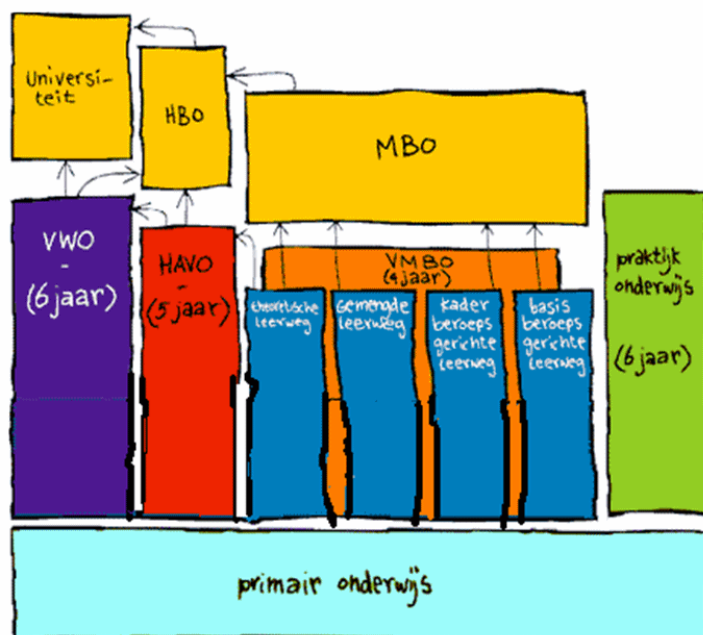 Universi-
teit
HBO
MBO
VWO
-
(6 jaar)
HAVO
-
(5 jaar)
VMBO
(4 jaar)
theoretische
leerweg
gemengde
leerweg
kader
beroeps
gerichte
leerweg
basis
beroeps
gerichte
leerweg
praktijk
onderwijs
(6 jaar)
primair onderwijs